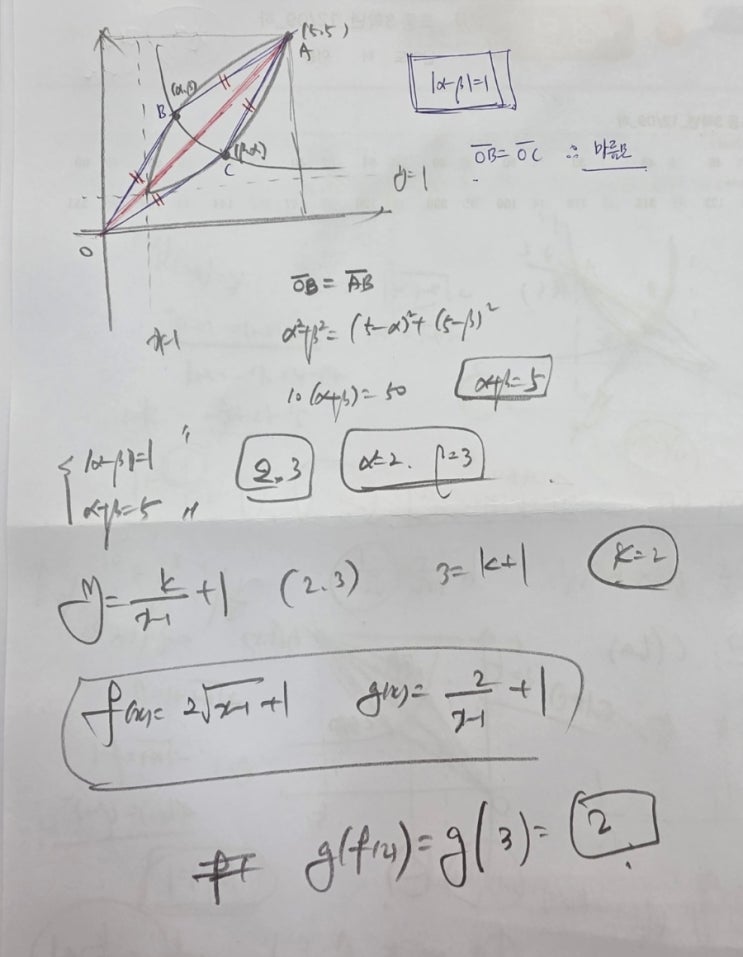 (5,5)
A
(α,β)
B
|α-β|=1
(β,α)
C
OB = OC ∴ 마름모
y=1
O
x=1
OB = AB
α²+β² = (5-α)²+(5-β)²
10(α+β)=50
α+β=5
|α-β|=1
α+β=5
2.3
α=2. β=3
y=k/(x-1)+1 (2.3) 3=k+1 k=2
f(x)=2√(x-1)+1 g(x)=2/(x-1)+1
g(f(2))=g(3)=2